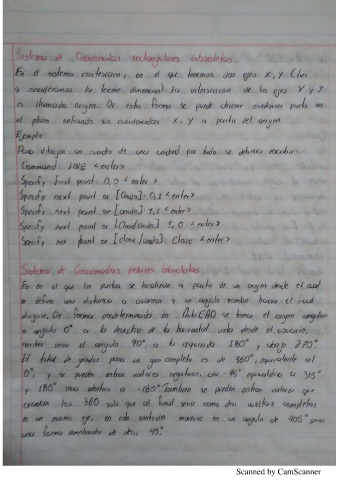 Sistema de Coordenadas rectangulares absolutas
En el sistema cartesiano, en el que tenemos dos ejes X, Y (
si consideramos la tercer dimension) la interseccion de los ejes X y Y
es llamado origen. De esta forma se puede ubicar cualquier punto en
el plano entrando sus coordenadas X, Y a partir del origen
Ejemplo
Para dibujar un cuadro de una unidad por lado se debera escribir:
Command: LINE <enter>
Specify first point: 0,0 <enter>
Specify next point or [Undo]: 0,1 <enter>
Specify next point or [undo]: 1,1 <enter>
Specify next point or [Close/undo]: 1,0 <enter>
Specify next point or [close/undo]: Close <enter>
Sistema de Coordenadas polares absolutas
Es en el que los puntos se localizan a partir de un origen desde el cual
se define una distancia a avanzar y un angulo rumbo hacia el cual
dirigirse. De forma predeterminada en AutoCAD se toma el origen angular
o angulo 0° a la derecha de la horizontal vista desde el usuario,
arriba seria el angulo 90°, a la izquierda 180° y abajo 270°.
El total de grados para un giro completo es de 360°, equivalente al
0°, y se pueden entrar valores negativos, un -45° equivaldria a 315°
y 180° seria identico a -180° Tambien se pueden entrar valores que
excedan los 360 solo que al final seria como dar vueltas completas
en un mismo eje, en este sentido moverse en un angulo de 405° seria
una forma complicada de decir 45°.
Scanned by CamScanner